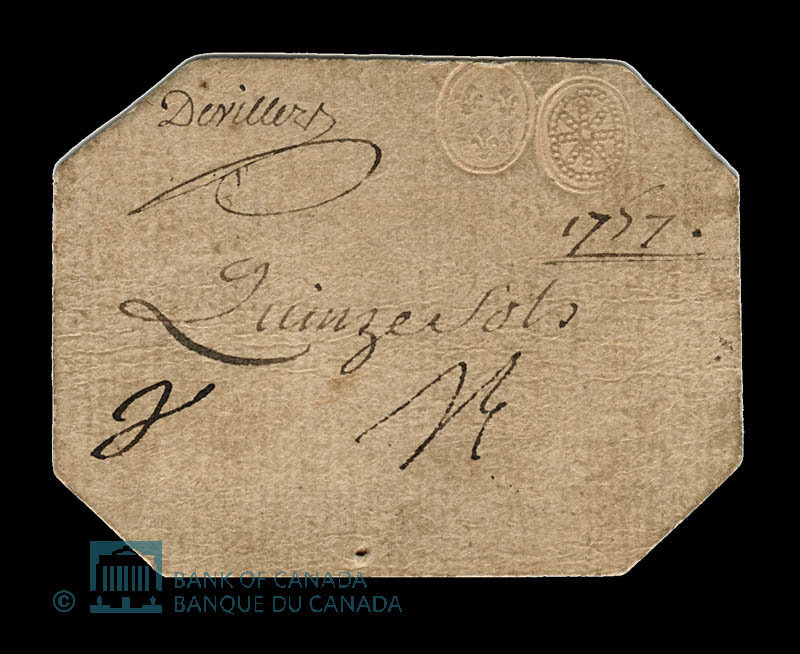 Devillers
1757.
Quinze Sols
© BANK OF CANADA
BANQUE DU CANADA